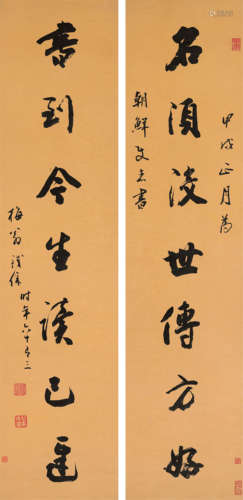 甲戌正月為
名須没世傳方好
朝鮮史書
書到今生讀已遲
梅翁鐵保時年六十有三